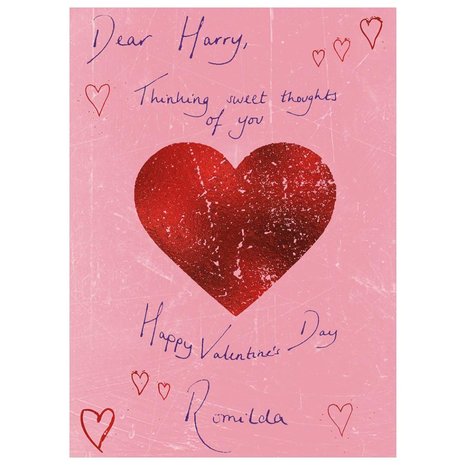 Dear Harry,
Thinking sweet thoughts
of you
Happy Valentine's Day
Romilda